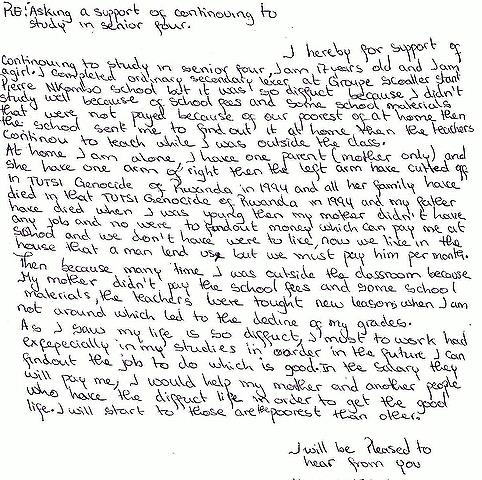 RE: Asking a support of continouing to
study in senior four.
I hereby for support of
continouing to study in senior four, I am 17 years old and I am
agirl. I completed ordinary secondary level at Groupe Scoaller Saint
Pierre Nkombo school but it was so diffuct because I didn't
study well because of school fees and some school materials
that were not payed because of our poorest of at home then
the school sent me to find out it at home than the teachers
Continou to teach while I was outside the class.
At home I am alone, I have one parent (mother only) and
she have one arm of right then the left arm have cutted of
in TUTSI Genocide of Rwanda in 1994 and all her family have
died in that TUTSI Genocide of Rwanda in 1994 and my father
have died when I was young then my mother didn't have
any job and no were to findout money which can pay me at
school and we don't have were to live, now we live in the
house that a man lend us but we must pay him per month.
Then because many time I was outside the classroom because
My mother didn't pay the school fees and some school
materials, the teachers were tought new leasons when I am
not around which led to the decline of my grades.
As I saw my life is so diffuct, I must to work hard
exfepecially in my studies in order in the future I can
findout the job to do which is good. In the salary they
will pay me, I would help my mother and another people
who have the diffuct life in order to get the good
life. I will start to those are the poorest than other.
I will be pleased to
hear from you